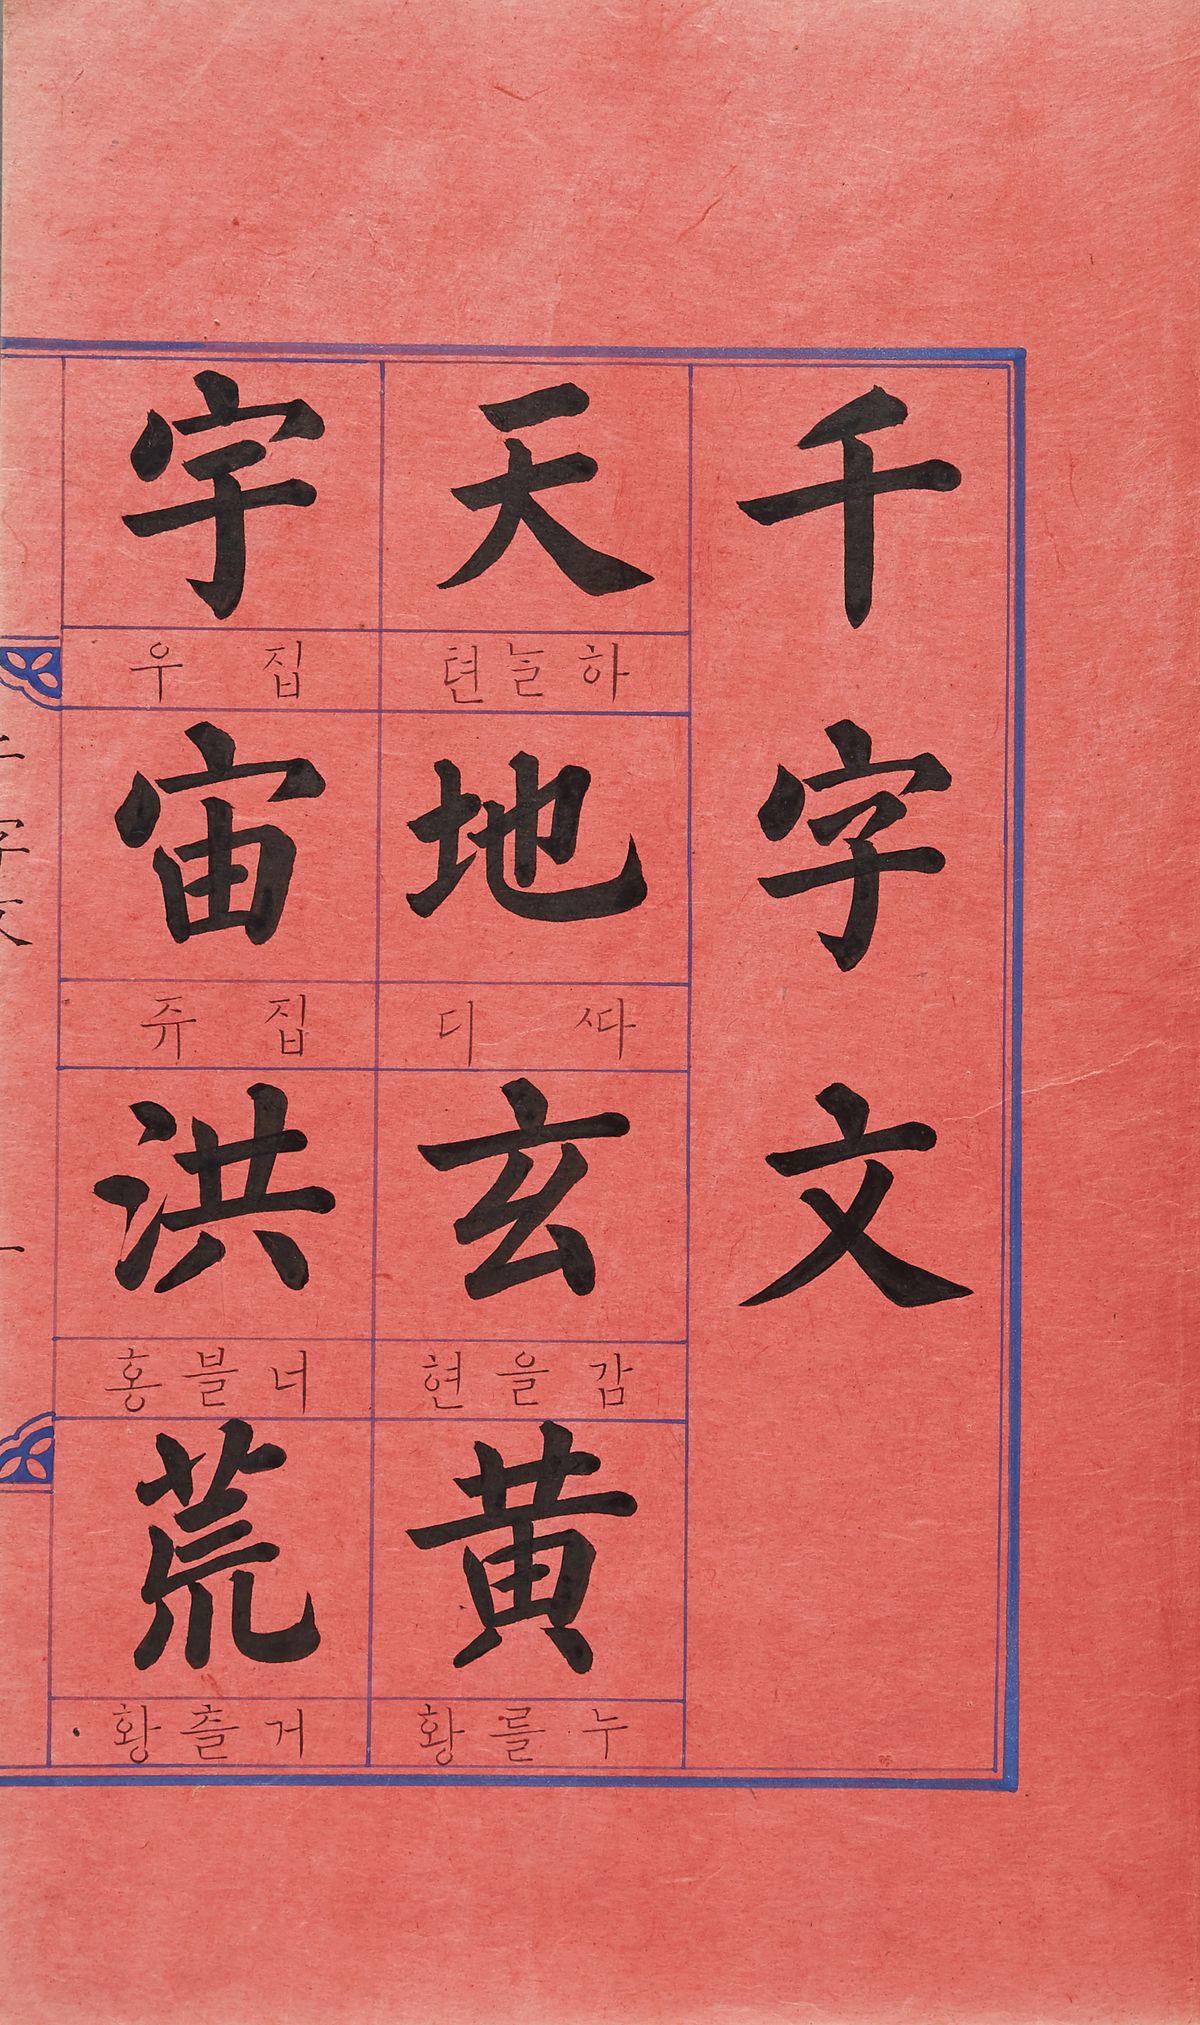 千字文
天
하늘텬
地
ᄯᅡ디
玄
감을현
黃
누를황
宇
집우
宙
집쥬
洪
너블홍
荒
거츨황
千字文
一